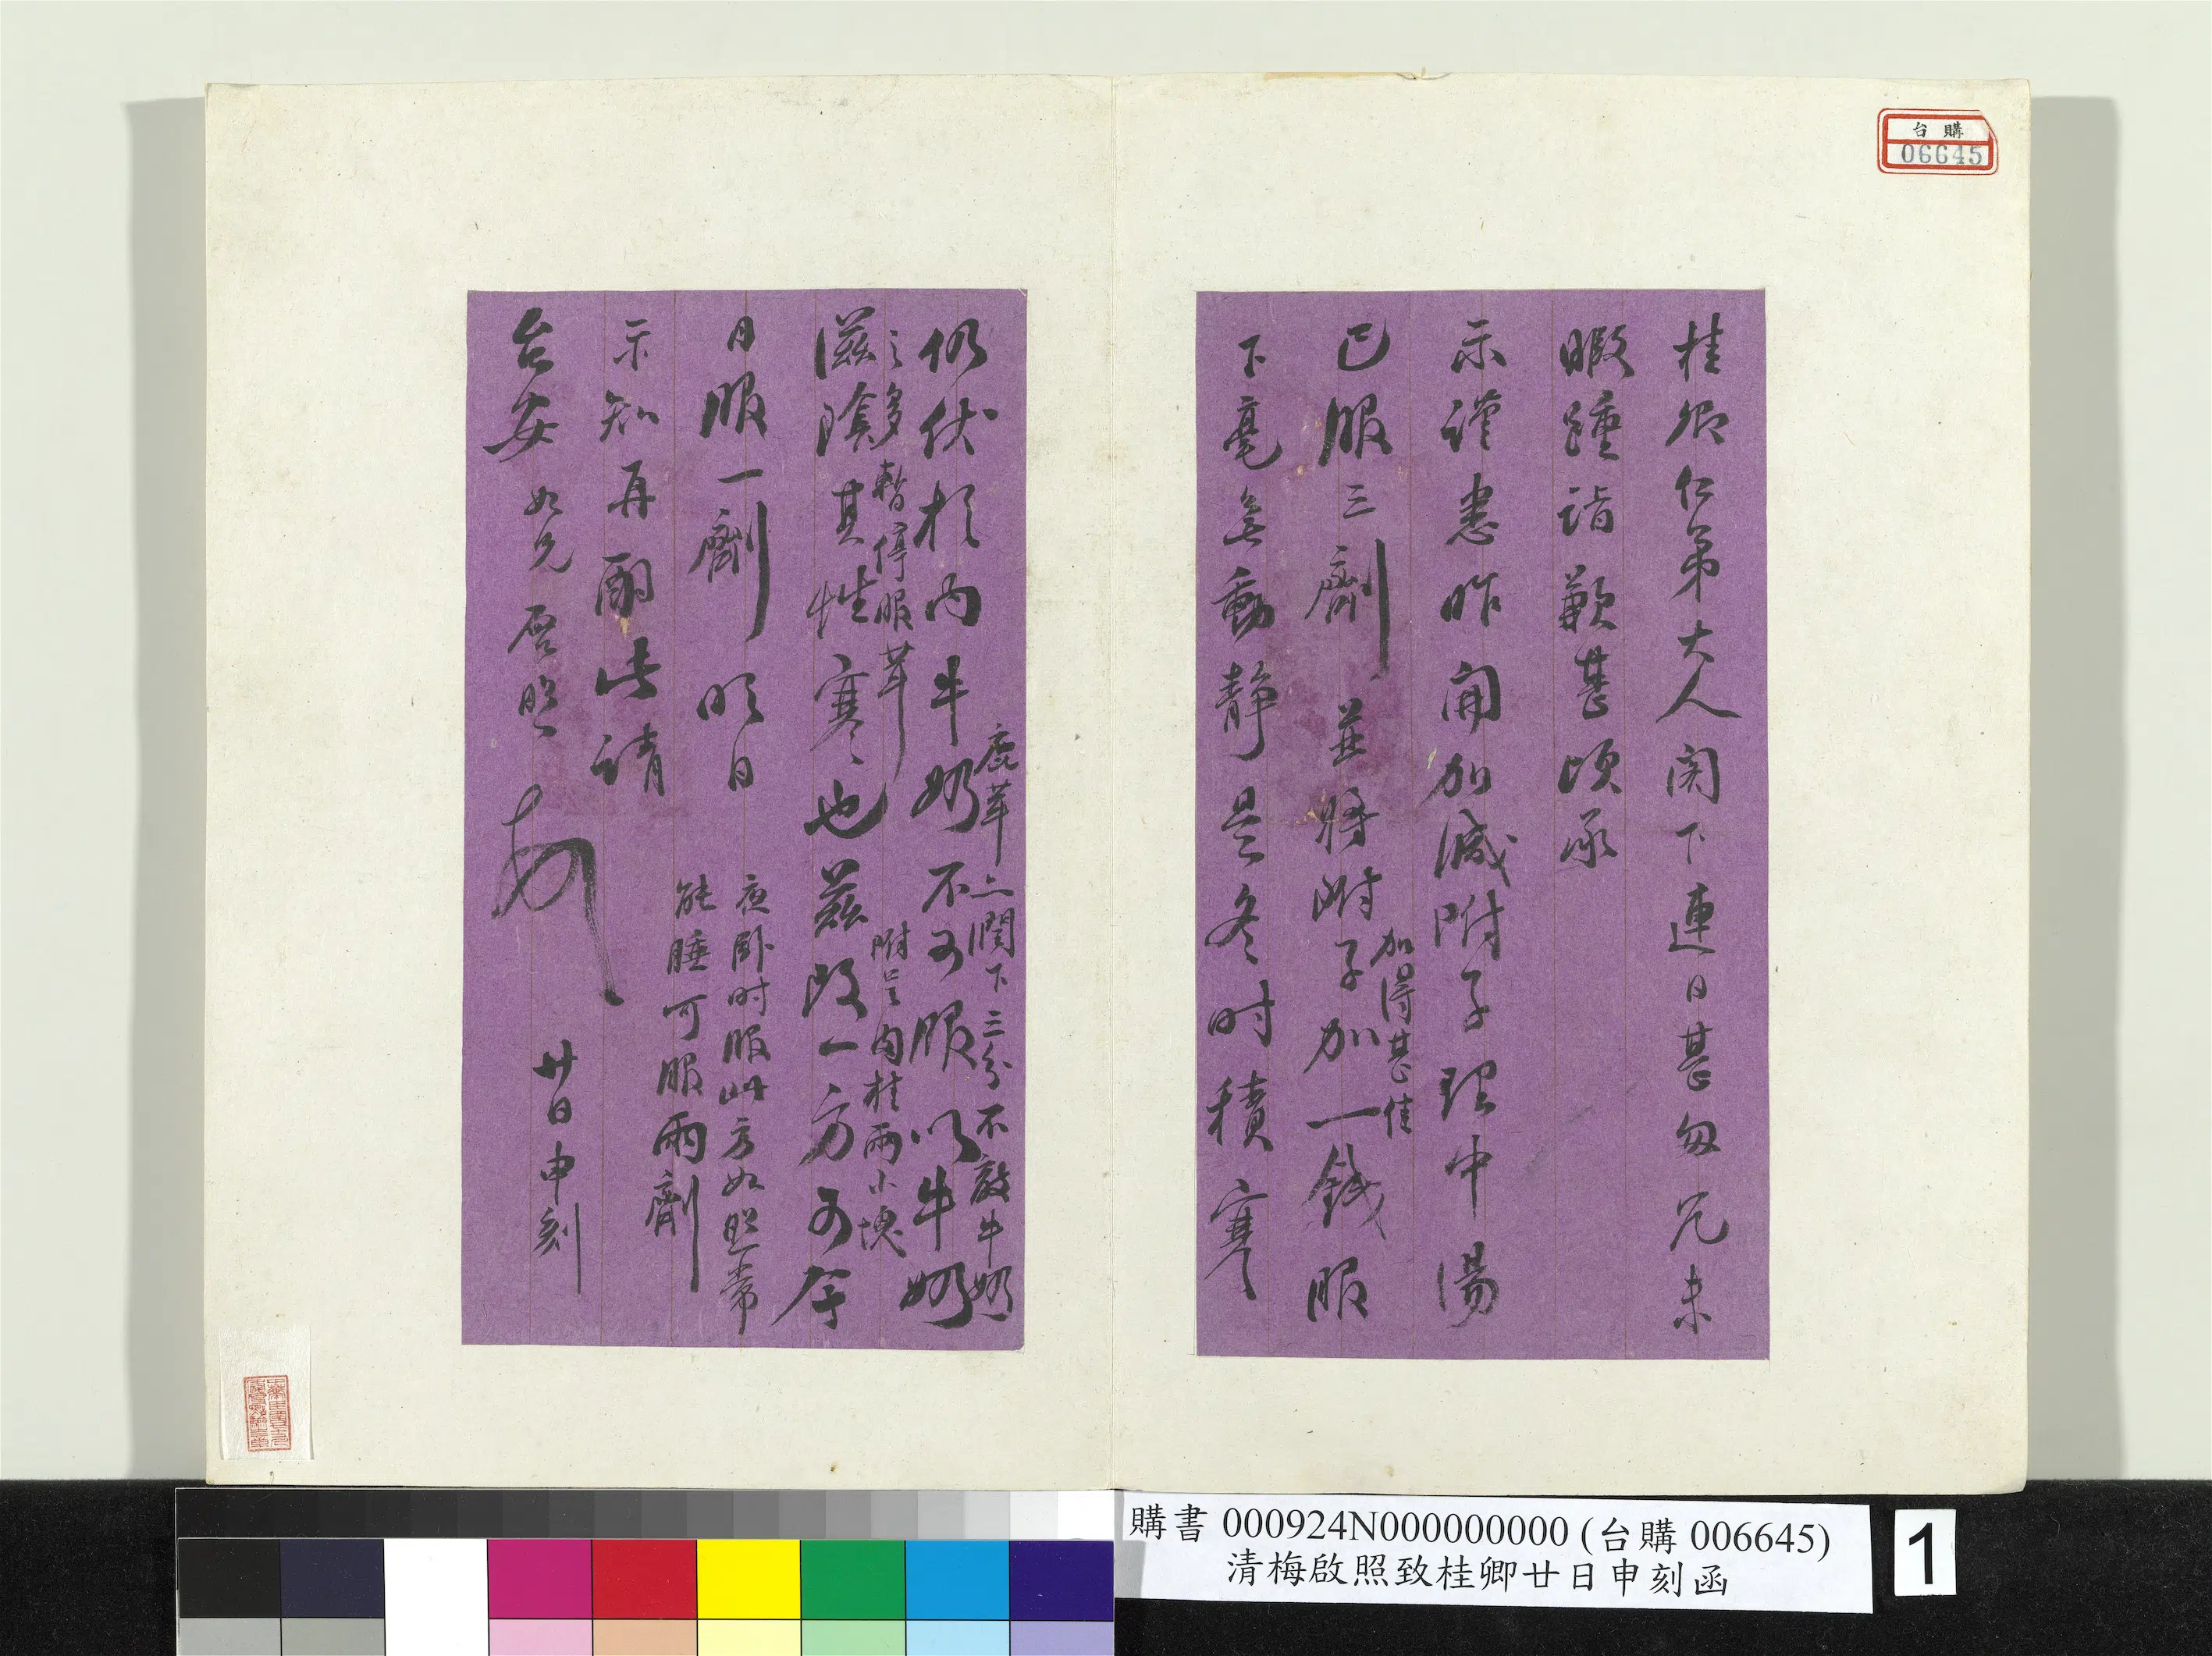 台購
06645
桂卿仁弟大人閣下連日甚匆冗未
暇踵詣歉甚頃承
示謹悉昨開加減附子理中湯
已服三劑並將附子加一錢服
加得甚佳
下毫無動靜是冬時積寒
仍伏於內牛奶不可服以牛奶
鹿茸上潤下三分不敵牛奶
之多暫停服茸
附呈肉桂兩小塊
滋陰其性寒也茲改一方可今
日服一劑明日
夜臥時服此方如照常
能睡可服兩劑
示知再酌此請
台安 如兄啟照
廿日申刻
購書 000924N000000000 (台購 006645)
清梅啟照致桂卿廿日申刻函
1